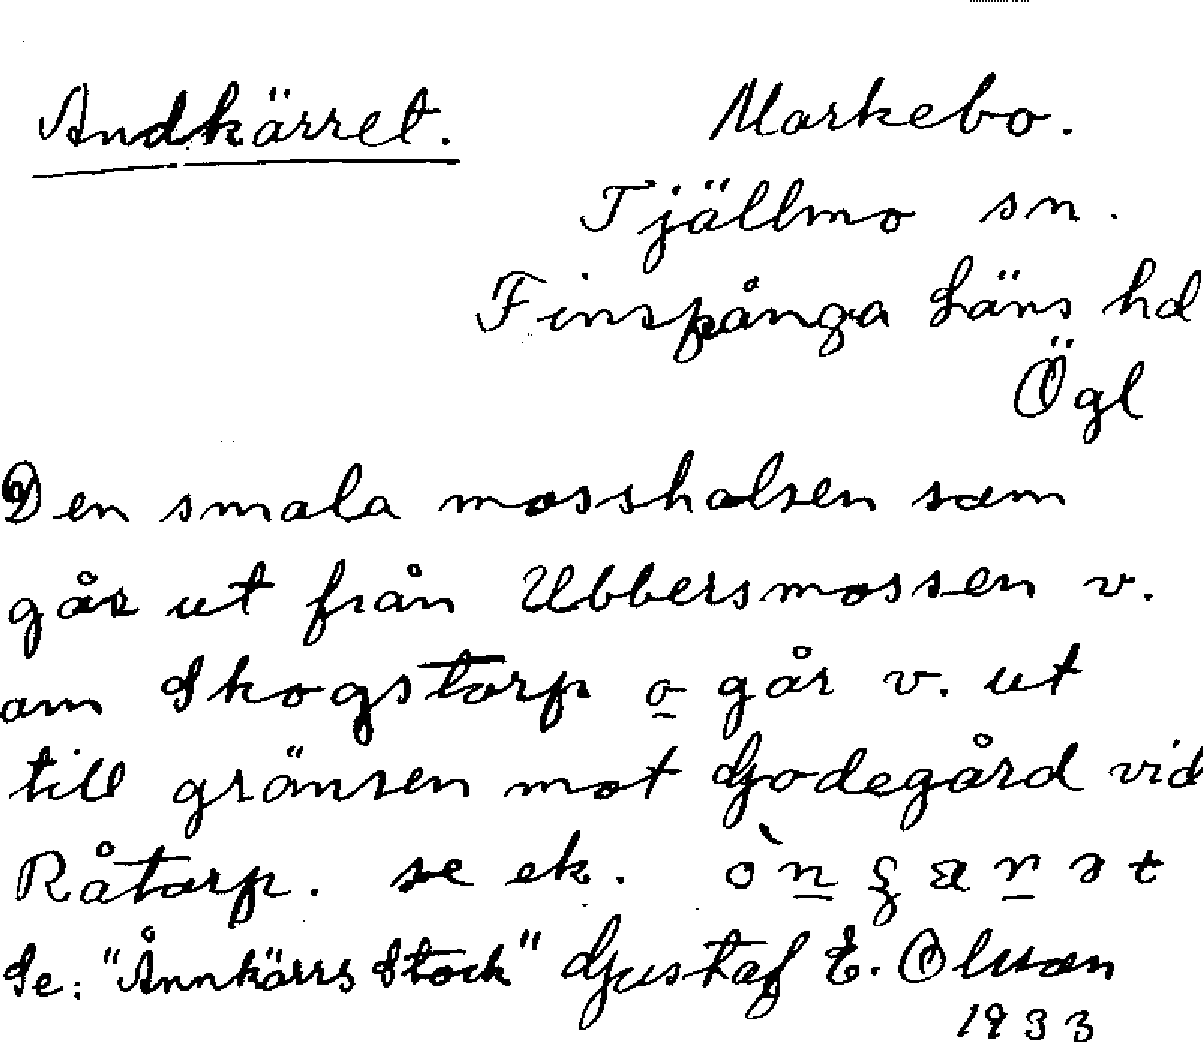 Andkärret. Markebo.
Tjällmo sn.
Finspånga Läns hd
Ögl
Den smala mosshalsen som
går ut från Ubbersmossen v.
om Skogstorp o går v. ut
till gränsen mot Godegård vid
Råtorp. se ek.
Se: "Ånnkärrs Stock" Gustaf E. Olsson
1933